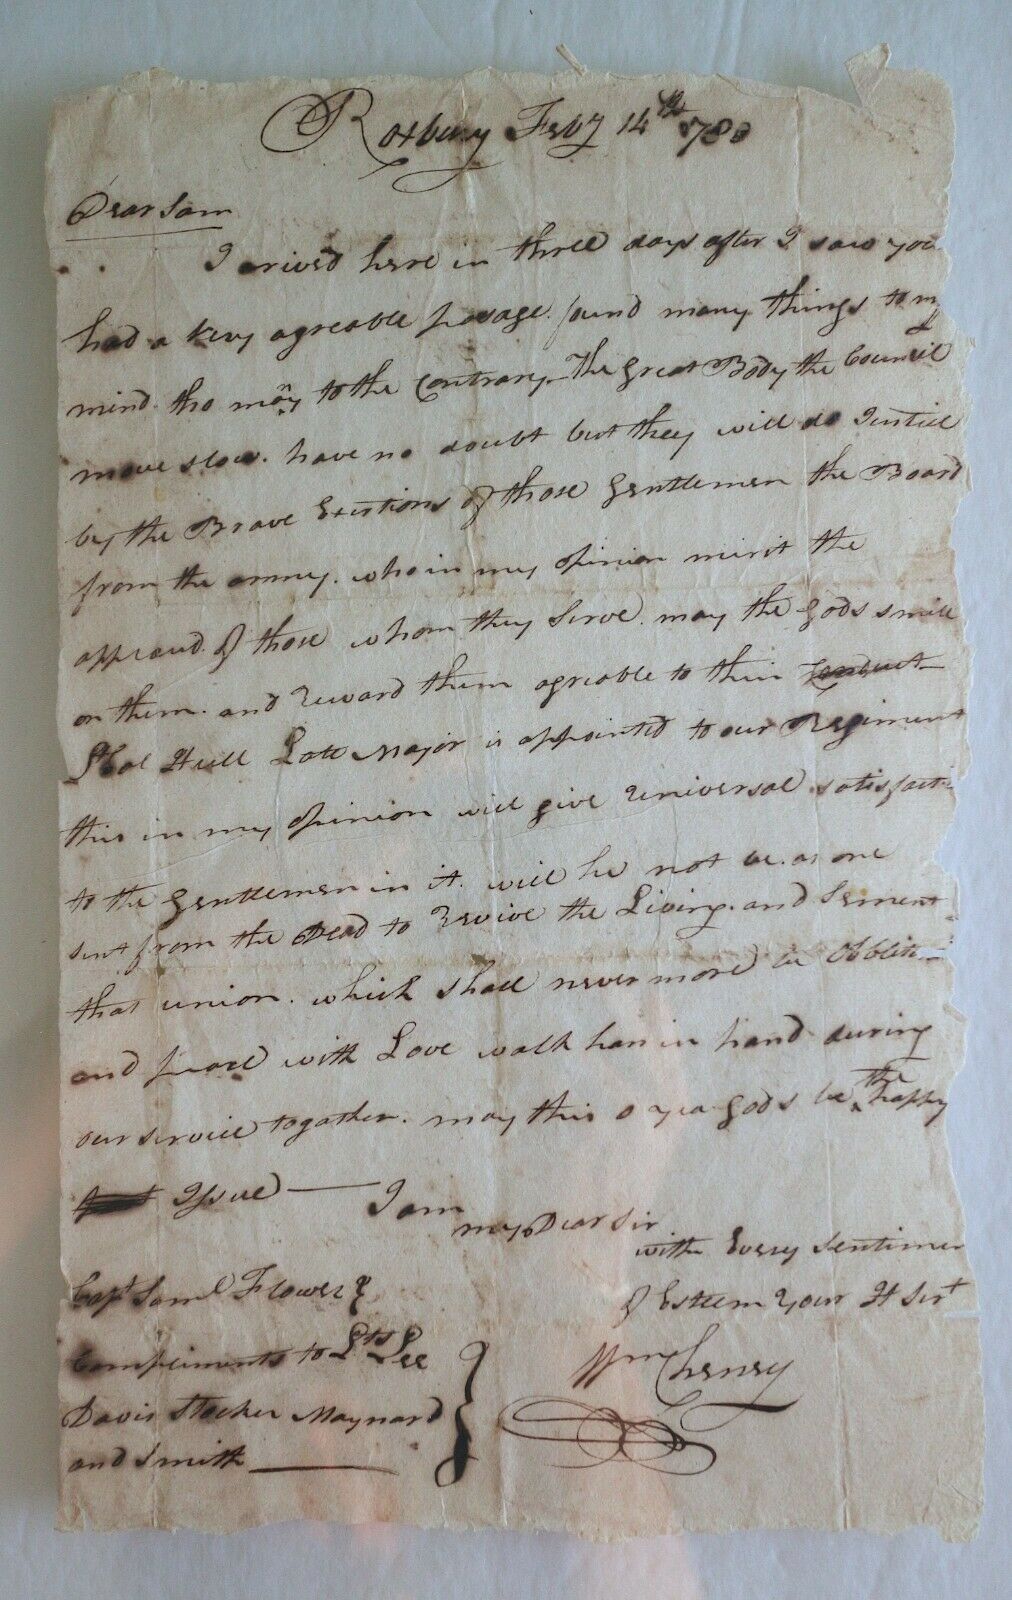 Roxbury Feby 14th 1780
Dear Sam
I arived here in three days after I saw you
had a very agreable passage. found many things to my
mind. tho many to the Contrary. The Great Body the Council
move slow. have no doubt but they will do Justice
by the Brave Exertions of those Gentlemen the Board
from the army. who in my opinion merit the
applaud. of those whom they serve. may the Gods smile
on them. and reward them agreable to their Conduct
Hull Late Major is appointed to our Regiment
this in my opinion will give universal satisfacti
to the Gentlemen in it. will he not be. as one
sent from the Dead to revive the Living. and Sement
that union. which shall never more be
and peace with Love walk han in hand during
our service together. may this o yea Gods be the happy
Issue — I am
my Dear Sir
with Every Sentimen
of Esteem Your H Sert
Wm Cheney
Capt Saml Flower
Compliments to Lts Lee
Davis Stocker Maynard
and Smith